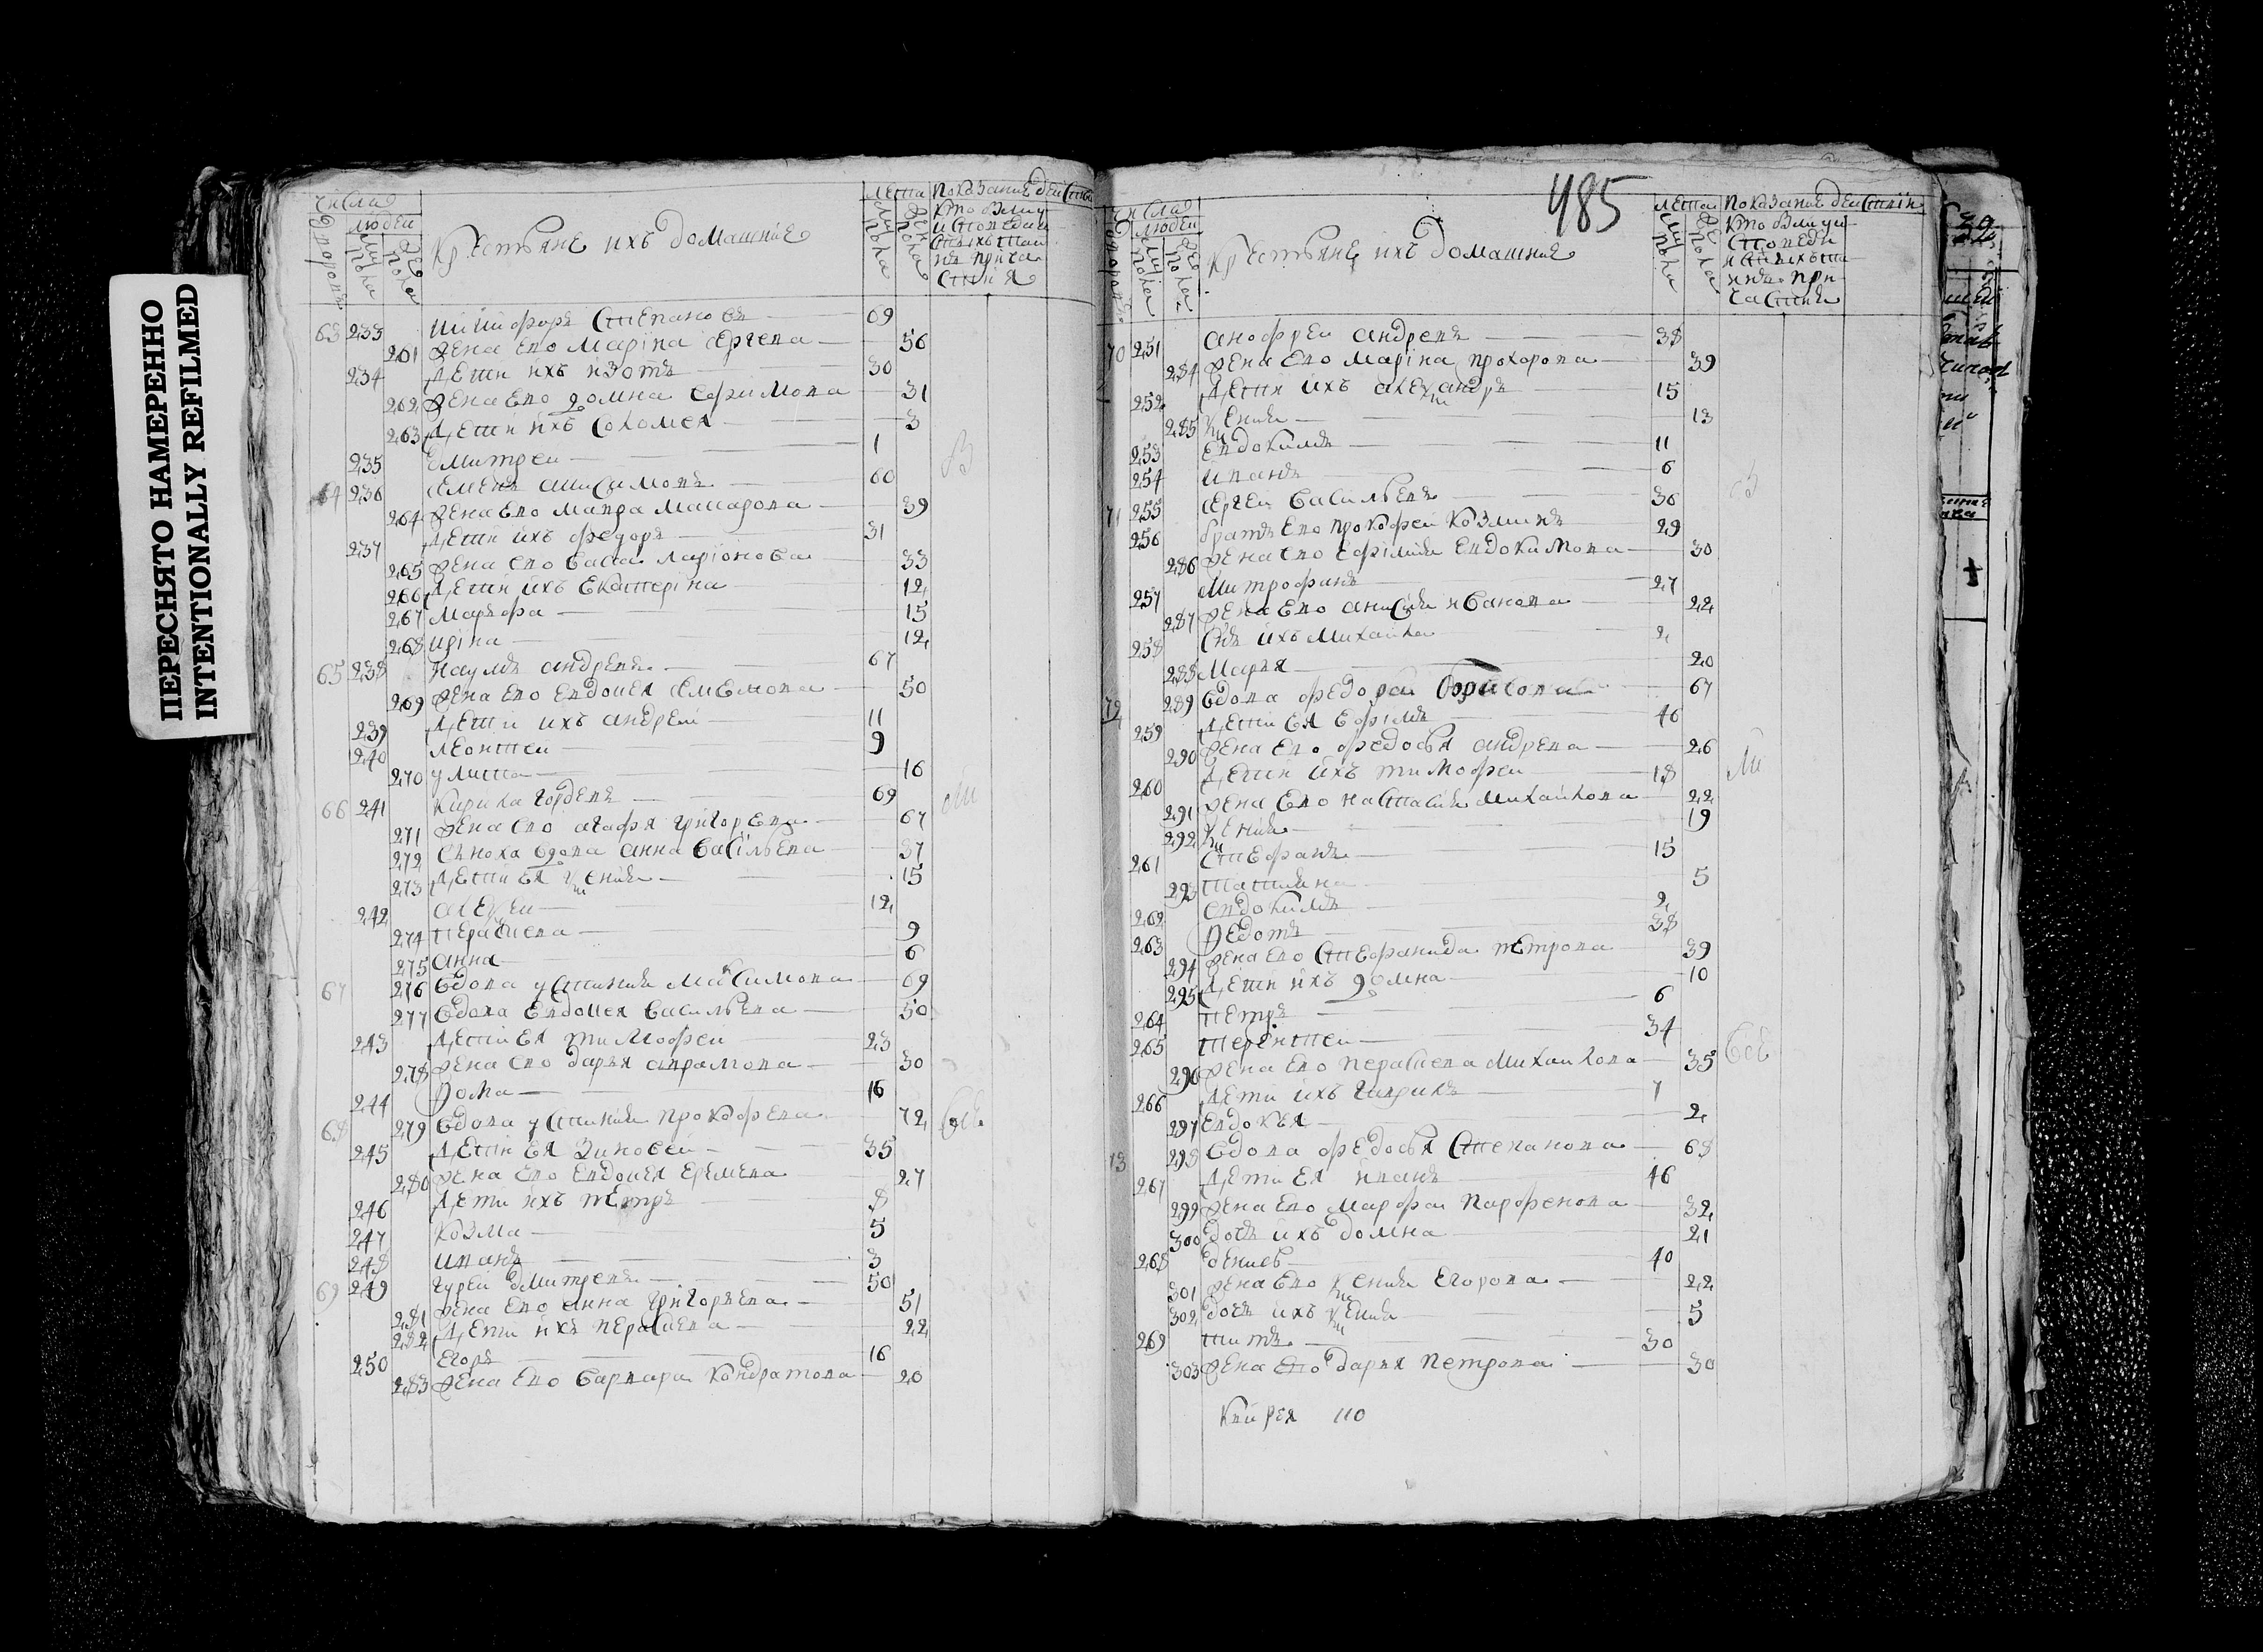 ПЕРЕСНЯТО НАМЕРЕННО
INTENTIONALLY REFILMED
числа
людей
Крестьяне ихъ домашние
лета
показание действ
485
63 233 Никифоръ Степановъ 69
261 жена ево Марiна Сергева 56
234 дети ихъ Изотъ 30
262 жена ево Домна Ефимова 31
263 дети ихъ Соломея 3
235 Дмитреи 1
64 236 Семенъ 60
264 жена ево Мавра Макарова 39
237 дети ихъ Федоръ 31
265 жена ево Васа Ларiонова 33
266 дети ихъ Екатерiна 12
267 Марѳа 15
268 Ирiна 12
65 238 Наумъ Андревъ 67
269 жена ево Евдокея Семенова 50
239 дети ихъ Андреи 11
240 Леонтеи 9
270 Улита 16
66 241 Кирила Гордевъ 69
271 жена ево Агафя Григорева 67
272 сноха вдова Анна Васiльева 37
273 дети ея Ксения 15
242 Алексеи 12
274 Перасковя 9
275 Анна 6
67 276 вдова Устиния Максимова 69
277 вдова Евдокея Васильева 50
243 дети ея Тимофеи 23
278 жена ево Даря Аврамова 30
244 Фома 16
68 279 вдова Устиния Прокофева 72
245 дети ея Зиновеи 35
280 жена ево Евдокея Еремева 27
246 дети ихъ Петръ 8
247 Козма 5
248 Иванъ 3
69 249 Гуреи Дмитревъ 50
281 жена ево Анна Григорева 51
282 дети ихъ Перасковя 22
250 Егоръ 16
283 жена ево Варвара Кондратова 20
числа
людей
Крестьяне ихъ домашние
лета
показание действий
70 251 Анофреи Андревъ 38
284 жена ево Марiна Прохорова 39
252 дети ихъ Александръ 15
285 Ксения 13
253 Евдокимъ 11
254 Иванъ 6
71 255 Сергеи Васильевъ 36
256 братъ ево Прокофеи Козминъ 29
286 жена ево Ефiмия Евдокимова 30
257 Митрофанъ 27
287 жена ево Анисия Иванова 22
258 сынъ ихъ Михаила 2
288 Маря 20
72 289 вдова Федора 67
259 дети ея Ефiмъ 46
290 жена ево Федосья Андрева 26
260 дети ихъ Тимофеи 18
291 жена ево Настасия Михаилова 22
292 Ксения 19
261 Стефанъ 15
293 Татияна 5
262 Евдокимъ 2
263 Федотъ 38
294 жена ево Стефанида Петрова 39
295 дети ихъ Домна 10
264 Петръ 6
265 Терентеи 34
296 жена ево Перасковя Михаилова 35
266 дети ихъ Гаврила 7
297 Евдокея 2
73 298 вдова Федосья Степанова 68
267 дети ея Иванъ 46
299 жена ево Марфа Парфенова 32
300 дочь ихъ Домна 21
268 Денисъ 40
301 жена ево Ксения Егорова 22
302 дочь ихъ Ксения 5
269 Титъ 30
303 жена ево Даря Петрова 30
110